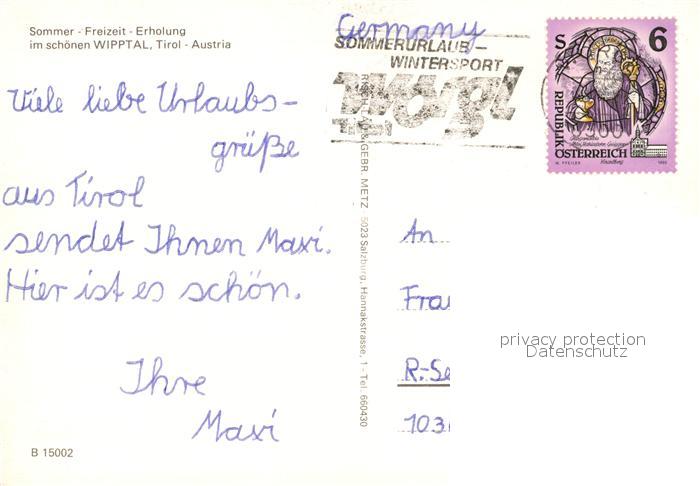 Sommer - Freizeit - Erholung
im schönen WIPPTAL, Tirol - Austria
Viele liebe Urlaubs-
grüße
aus Tirol
sendet Ihnen Maxi.
Hier ist es schön.
Ihre
Maxi
B 15002
& GEBR. METZ · 5023 Salzburg, Hannakstrasse, 1 - Tel. 660430
Germany
SOMMERURLAUB-
WINTERSPORT
wörgl
Tirol
S 6
REPUBLIK
ÖSTERREICH
An
Frau
R.-Se
103
privacy protection
Datenschutz